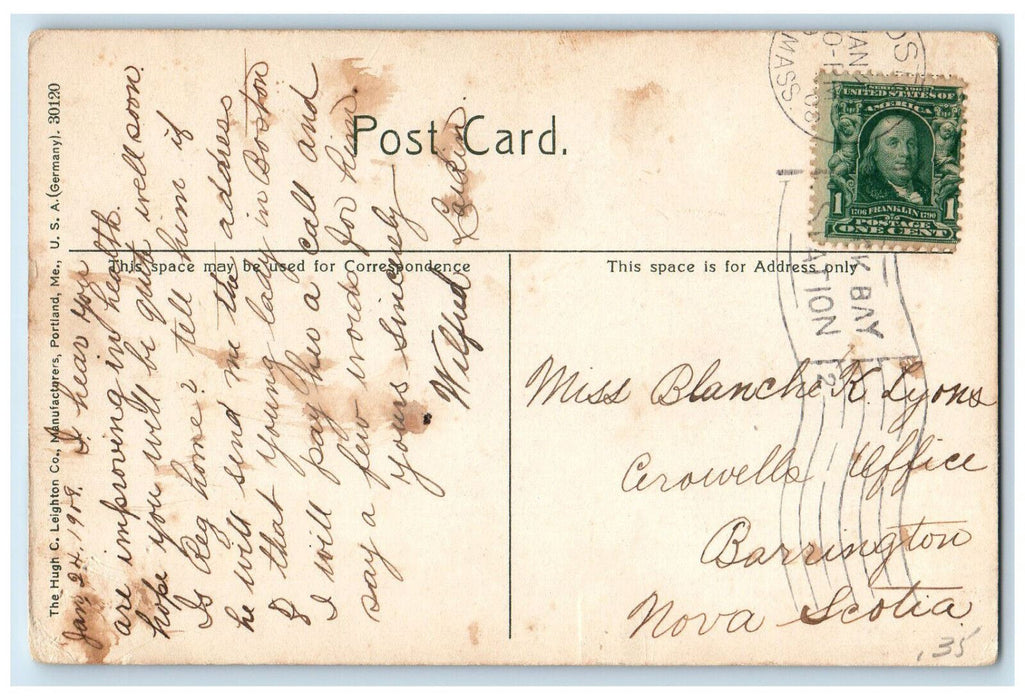 Post Card.
This space may be used for Correspondence
This space is for Address only
The Hugh C. Leighton Co., Manufacturers, Portland, Me., U. S. A. (Germany). 30120
Jany 24, 1908. I hear you
are improving in health.
hope you will be quite well soon.
Is Reg home? tell him if
he will send me the address
of that young lady in Boston
I will pay her a call and
say a few words for him.
yours sincerely
Wilfred
SERIES 1902
UNITED STATES OF
AMERICA
1 1
1706 FRANKLIN 1790
POSTAGE
ONE CENT
MASS.
JAN
K BAY
ATION
2
Miss Blanche K. Lyons
Crowells Office
Barrington
Nova Scotia.
.35